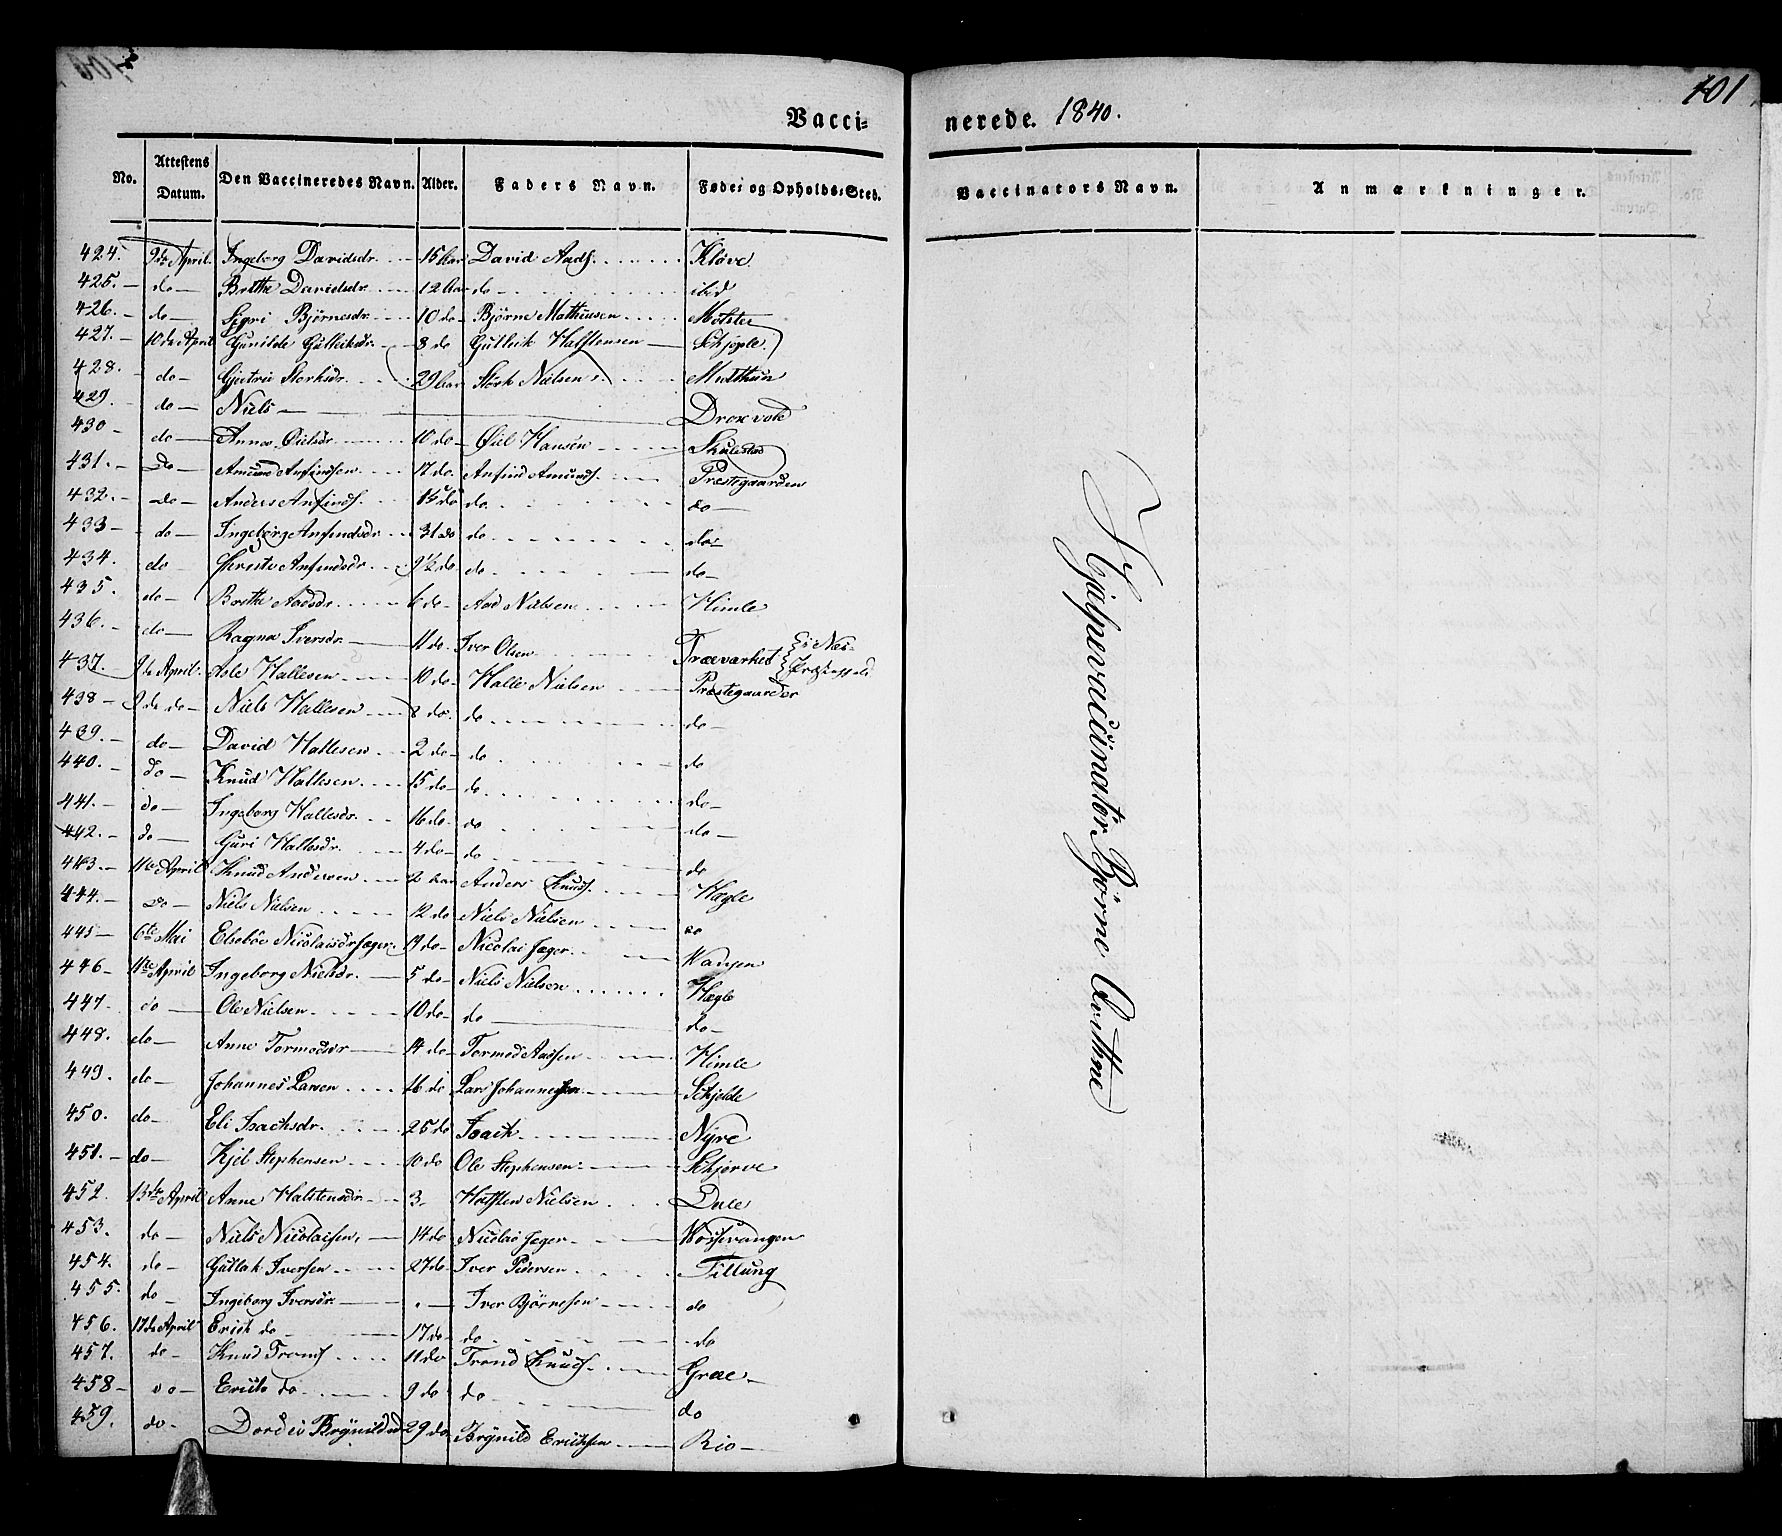 101
Vaccinerede. 1840.
No. Attestens Datum. Den Vaccineredes Navn. Alder. Faders Navn. Føde- og Opholds-Sted. Vaccinators Navn. Anmærkninger.
424. 9de April. Ingeborg Davidsdr. 15 Aar David Aads. Kløve
425. do Brithe Davidsdr. 12 Aar do ibid
426. do Sigri Bjørnesdr. 10 do Bjørne Mathiasen Molster
427. 10de April Gunilde Gulleiksdr. 8 do Gullik Halstensen
428. do Storksdr. 29 Aar Stork Nielsen
429. do Niels
430 do Anna 10 do Hansen Skulestad
431. do Amund Anfindsen 17 do Anfind Amunds. Præstegaarden
432. do Anders Anfinds. do do do
433 do Ingeborg Anfindsdr. 31 do do do
434. do Anfindsdr. 9 1/2 do do do
435. do Brithe Aadsdr. 6 do Aad Nielsen Himle
436. do Ragna Iversdr. 11 do Iver Olsen Træværket
437. 9de April. Hallesen 10 do Halle Nielsen Præstegaarden
438 9de do Niels Hallesen 8 do do do
439. do David Hallesen 2 do do do
440. do Knud Hallesen 15 do do do
441. do Ingeborg Hallesdr. 16 do do do
442. do Guri Hallesdr. 4 do do do
443. 11te April Knud Andersen 2 Aar Anders Knuds. Hægle
444. do Niels Nielsen 12 do Niels Nielsen do
445 6te Mai Elsebøe Nicolaisdr Jæger 17 do Nicolai Jæger Wangen
446 11te April Ingeborg Nielsdr. 5 do Niels Nielsen Hægle
447. do Ole Nielsen 10 do do do
448. do Anne Tormodsdr 14 do Tormod Aadsen Himle
449. do Johannes Larsen 26 do Lars Johannessen Schjelde
450. do Eli Isachsdr. 25 do Isach Nyre
451. do Kjel Stephensen 10 do Ole Stephensen Schjerve
452. 13de April Anne Halstensdr 3 Halsten Nielsen Dale
453. do Niels Nicolaisen 14 do Nicolai Jæger Vossevangen
454. do Gullak Iversen 27 do Iver Pedersen Tillung
455. do Ingeborg Iversdr. Iver Bjørnesen do
456. 17de April Erich do 17 do do do
457. do Knud Tronds. 11 do Trond Knuds. Græe
458 do do 9 do do do
459. do Dordei Brynildsd 29 do Brynild Erichsen Rio
Hjælpevaccinator Bjørne